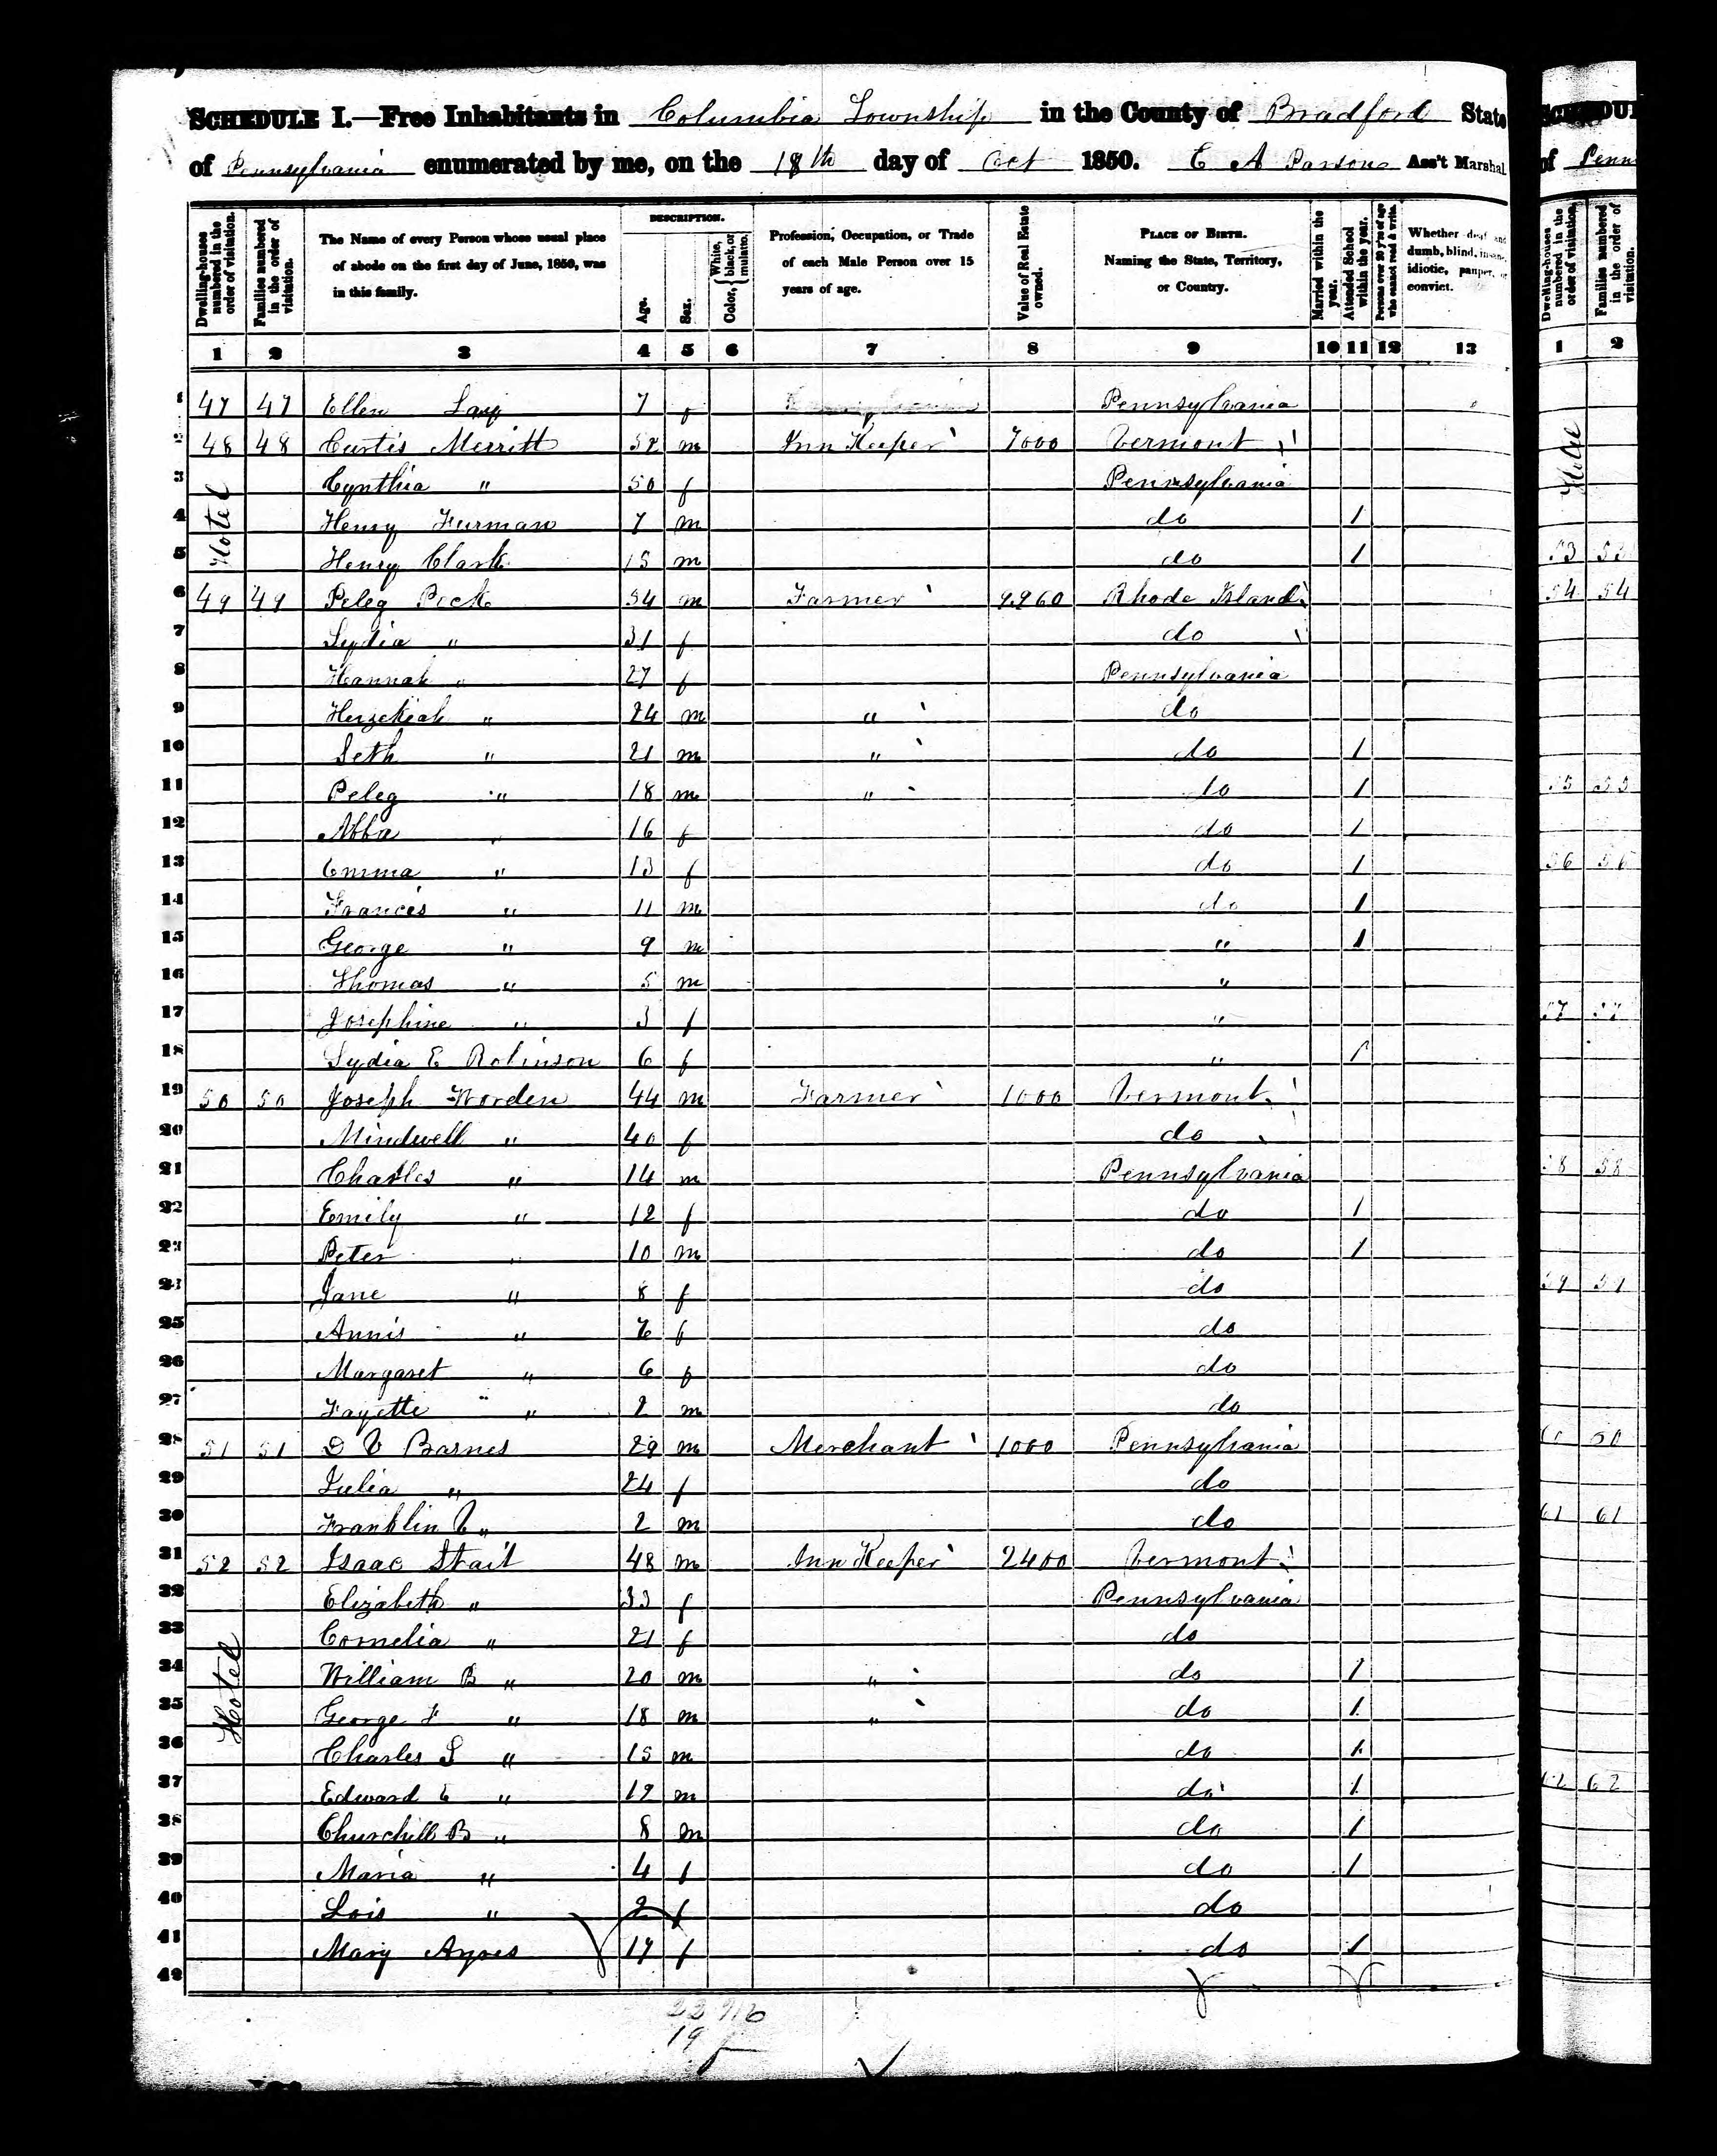 SCHEDULE I.—Free Inhabitants in Columbia Township in the County of Bradford State
of Pennsylvania enumerated by me, on the 18th day of Oct 1850. E A Parsons Ass't Marshal.
Dwelling-houses numbered in the order of visitation. Families numbered in the order of visitation. The Name of every Person whose usual place of abode on the first day of June, 1850, was in this family. DESCRIPTION. Age. Sex. Color, { White, black, or mulatto. Profession, Occupation, or Trade of each Male Person over 15 years of age. Value of Real Estate owned. PLACE OF BIRTH. Naming the State, Territory, or Country. Married within the year. Attended School within the year. Persons over 20 y'rs of age who cannot read & write. Whether deaf and dumb, blind, insane, idiotic, pauper, or convict.
1 2 3 4 5 6 7 8 9 10 11 12 13
1 47 47 Ellen 7 f Pennsylvania
2 48 48 Curtis Merritt 52 m Inn Keeper 7000 Vermont
3 Cynthia " 50 f Pennsylvania
4 Hotel Henry Furman 7 m do 1
5 Henry Clark 15 m do 1
6 49 49 Peleg Peck 54 m Farmer 9960 Rhode Island
7 Lydia " 51 f do
8 Hannah " 27 f Pennsylvania
9 Hezekiah " 24 m " do
10 Seth " 21 m " do 1
11 Peleg " 18 m " do 1
12 Abba " 16 f do 1
13 Emma " 13 f do 1
14 Francis " 11 m do 1
15 George " 9 m " 1
16 Thomas " 5 m "
17 Josephine " 3 f "
18 Lydia E Robinson 6 f " 1
19 50 50 Joseph Worden 44 m Farmer 1000 Vermont
20 Mindwell " 40 f do
21 Charles " 14 m Pennsylvania
22 Emily " 12 f do 1
23 Peter " 10 m do 1
24 Jane " 8 f do
25 Annis " 6 f do
26 Margaret " 6 f do
27 Fayette " 2 m do
28 51 51 D V Barnes 29 m Merchant 1000 Pennsylvania
29 Julia " 24 f do
30 Franklin V " 2 m do
31 52 52 Isaac Strait 48 m Inn Keeper 2400 Vermont
32 Elizabeth " 33 f Pennsylvania
33 Cornelia " 21 f do
34 Hotel William B " 20 m " do 1
35 George F " 18 m " do 1
36 Charles S " 15 m do 1
37 Edward E " 12 m do 1
38 Churchill B " 8 m do 1
39 Maria " 4 f do 1
40 Lois " 2 f do
41 Mary Ayres 17 f do 1
42
19
SCHEDU
of Penn
Dwelling-houses numbered in the order of visitation. Families numbered in the order of visitation.
1 2
Hotel
53 53
54 54
55 55
56 56
57 57
58 58
59 59
60 60
61 61
62 62